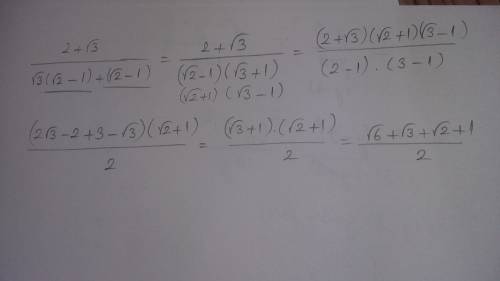 (2+√3)/(√3(√2-1)+(√2-1)) = (2+√3)/((√2-1)(√3+1)) = ((2+√3)(√2+1)(√3-1))/((2-1).(3-1))
(√2+1)(√3-1)
((2√3-2+3-√3)(√2+1))/2 = ((√3+1).(√2+1))/2 = (√6+√3+√2+1)/2